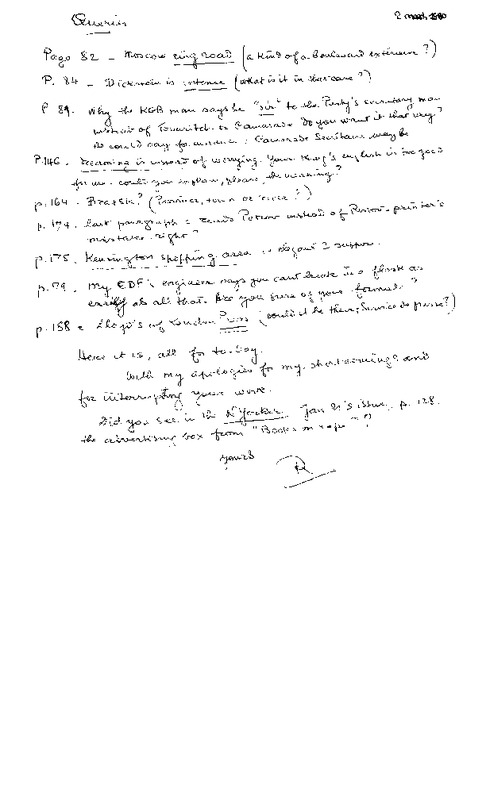 Queries
2 march 1980
Page 82 - Moscow ring road (a kind of a boulevard extérieur?)
P. 84 - Dickstein is intense (what is it in that case?)
P 89. Why the KGB man says he "sir" to the Party's secretary man
instead of Tovaritch or Camarade Do you want it that way?
He could say for instance: Camarade Secrétaire maybe
P.146. Steaming is worst of worrying. Your King's english is too good
for me. Could you explain, please, the meaning?
p.164. (Province, town or river?)
p.174. Last paragraph: instead of Person - printer's
mistake. right?
p.175. Kensington shopping area is I suppose.
p.79. My EDF's engineer says you can't break into a flask as
easily as all that. Are you sure of your "formula"?
p.158 = Lloyd's of London Press (could it be their Service de presse?)
Here it is, all for to-day.
With my apologies for my shortcomings and
for interrupting your work.
Did you see in the N'Yorker Jan 21's issue. p. 128.
the advertising box from "Books on tape"?
yours
R